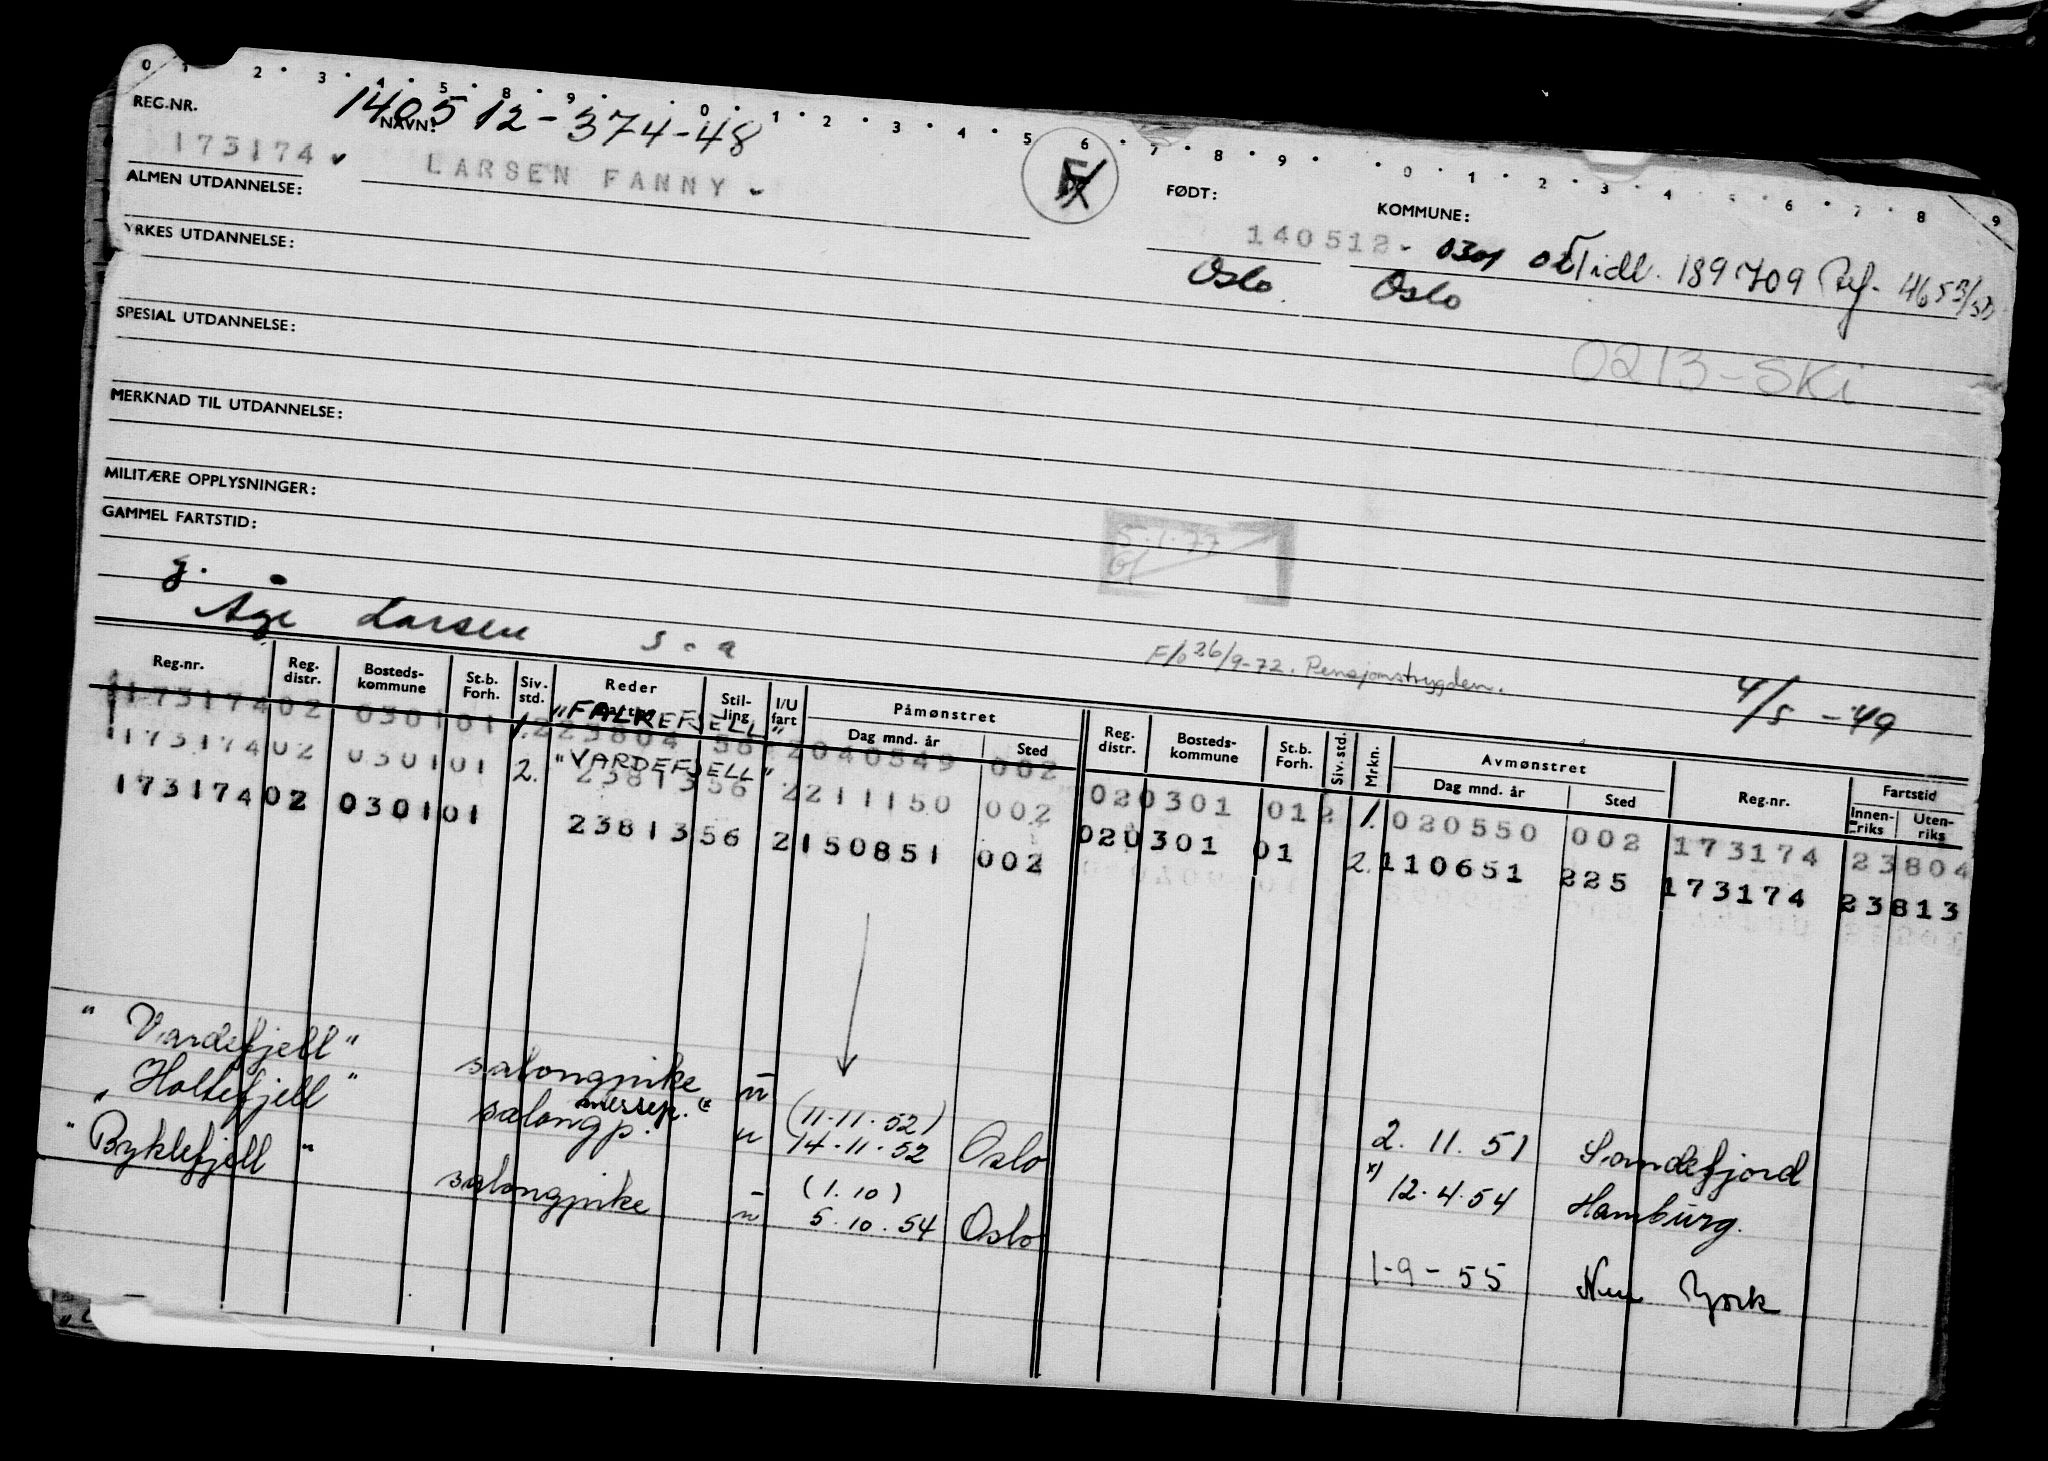 0 1 2 3 4 5 8 9 0 1 2 3 4 5 6 7 8 9 0 1 2 3 4 5 6 7 8 9
REG.NR. 140512-374-48
NAVN:
173174 LARSEN FANNY
FØDT: KOMMUNE:
140512 0301 02 Tidl. 189709 Ref. 4653/50
Oslo Oslo
ALMEN UTDANNELSE:
YRKES UTDANNELSE:
0213-Ski
SPESIAL UTDANNELSE:
MERKNAD TIL UTDANNELSE:
MILITÆRE OPPLYSNINGER:
GAMMEL FARTSTID:
5.1.77
g.
Åge Larsen s-a
F/o 26/9-72. Pensjonstrygden.
4/5-49
Reg.nr. Reg. distr. Bosteds-kommune St.b. Forh. Siv. std. Reder Stil-ling I/U fart Påmønstret Dag mnd. år Sted Reg. distr. Bosteds-kommune St.b. Forh. Siv. std. Mrkn. Avmønstret Dag mnd. år Sted Reg.nr. Fartstid Innen-riks Uten-riks
"FALKEFJELL"
173174 02 0301 01 1. 223804 56 2 040549 002
"VARDEFJELL"
173174 02 0301 01 2. 23813 56 2 211150 002 02 0301 01 2 1. 020550 002 173174 23804
173174 02 0301 01 23813 56 2 150851 002 02 0301 01 2. 110651 225 173174 23813
"Vardefjell" salongpike u 2.11.51 Sandefjord
"Holtefjell" salongp. messep. u (11-11.52) 14-11-52 Oslo x) 12.4.54 Hamburg.
"Byklefjell" salongpike u (1.10) 5.10.54 Oslo 1-9-55 New York